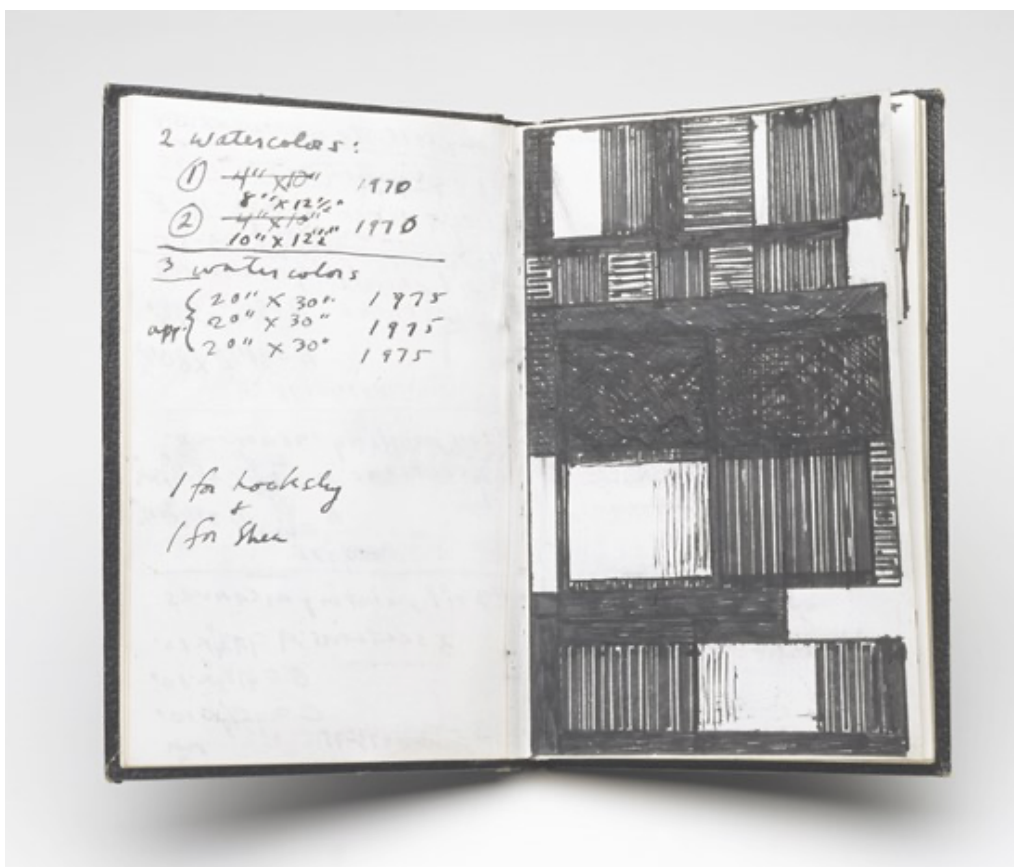 2 watercolors:
① 4" x 10" 1970
8" x 12½"
② 4" x 10" 1970
10" x 12½"
3 watercolors
20" x 30" 1975
app. 20" x 30" 1975
20" x 30" 1975
1 for
&
1 for Shea